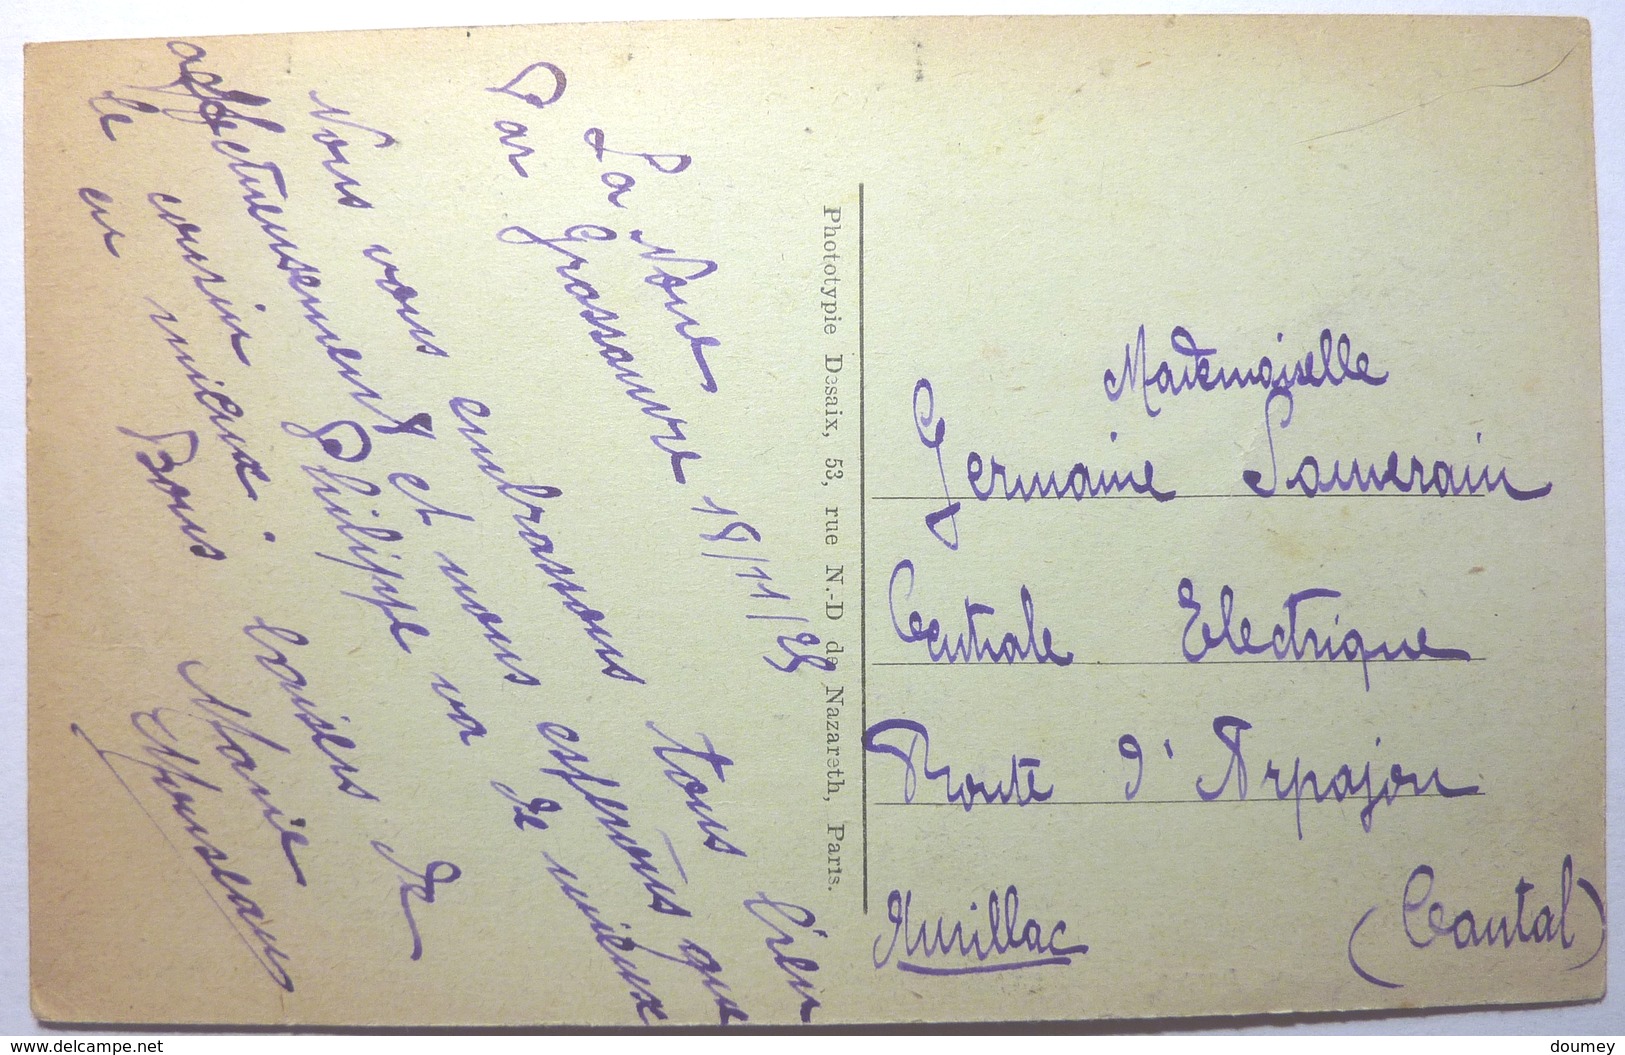 La Noue 18/11/25
Par Grossouvre
Nous vous embrassons tous bien
affectueusement et nous espérons que
le cousin Philippe va de mieux
en mieux. Bons baisers de
Marie
Mousseau
Phototypie Desaix, 53, rue N.-D de Nazareth, Paris.
Mademoiselle
Germaine Pomerain
Centrale Electrique
Route d'Arpajon
Aurillac (Cantal)
www.delcampe.net
doumey